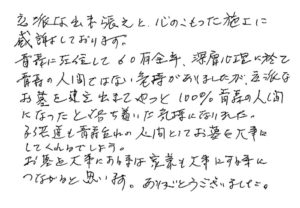 立派な出来映えと、心のこもった施工に
感謝しております。
青森に在住して60有余年、深層心理に於て
青森の人間ではない気持がありましたが、立派な
お墓を建立出来てやっと100%青森の人間
になったと落ち着いた気持になりました。
子供達も青森生れの人間としてお墓を大事に
してくれるでしょう。
お墓を大事にする事は家業も大事にする事に
つながると思います。ありがとうございました。